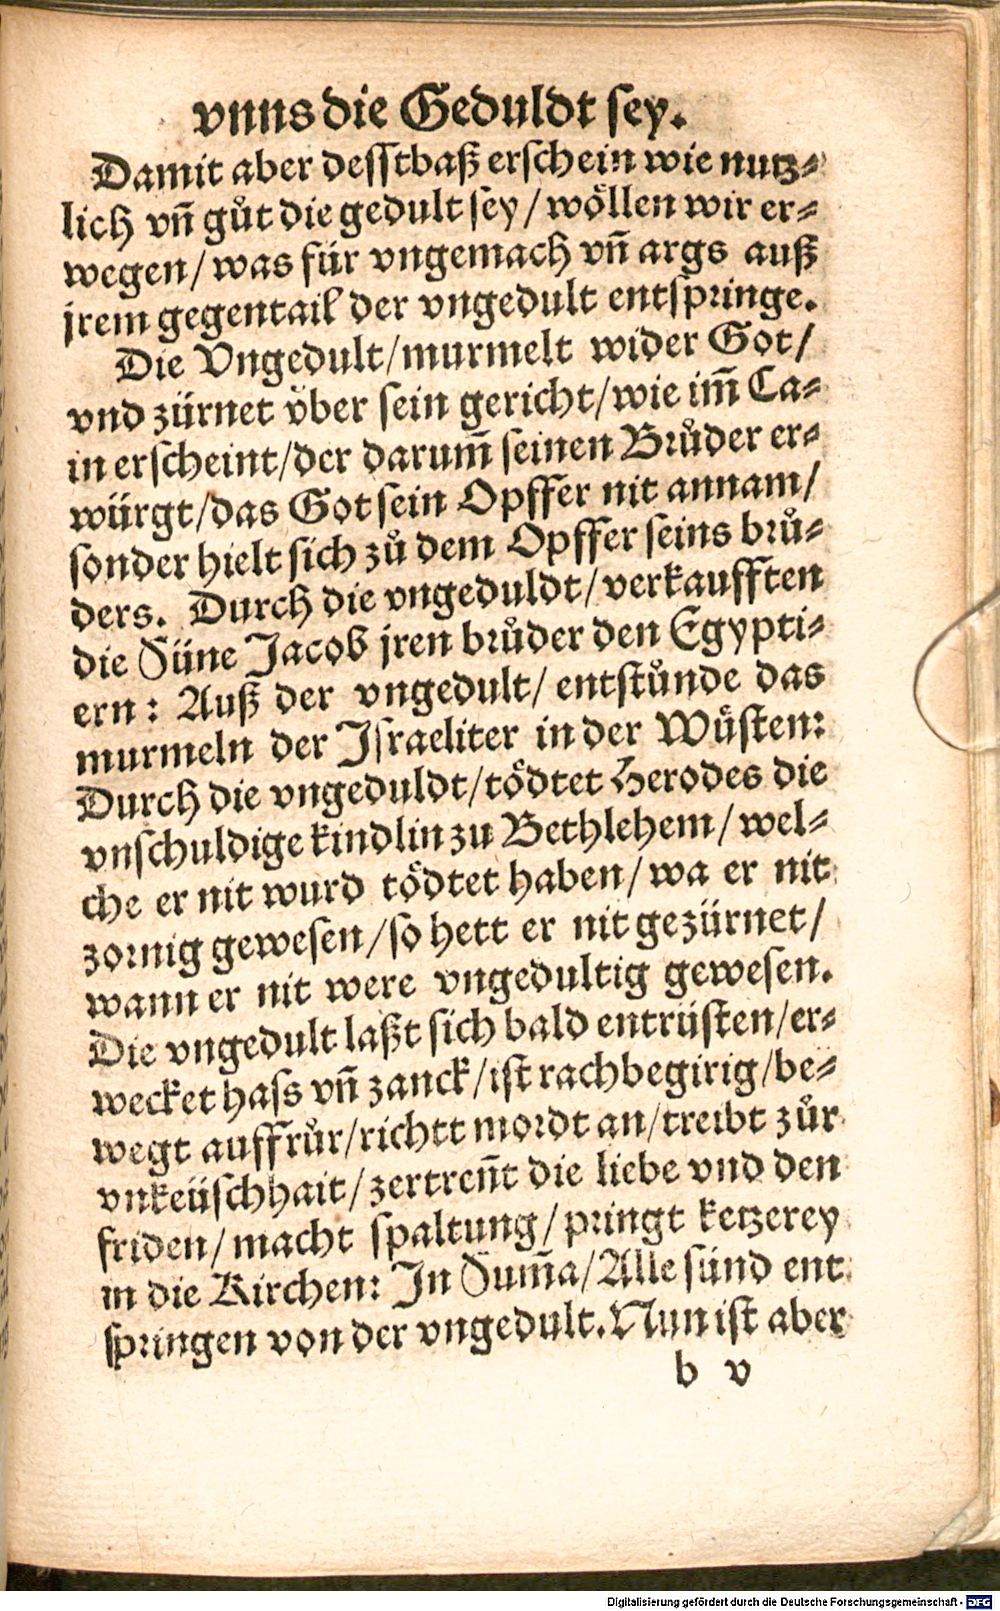 vnns die Geduldt sey.
Damit aber desstbaß erschein wie nutz⸗
lich vn̄ gůt die gedult sey / wöllen wir er⸗
wegen / was für vngemach vn̄ args auß
jrem gegentail der vngedult entspringe.
Die Vngedult / murmelt wider Got /
vnd zürnet über sein gericht / wie im̄ Ca⸗
in erscheint / der darum̄ seinen Brůder er⸗
würgt / das Got sein Opffer nit annam /
sonder hielt sich zů dem Opffer seins brů⸗
ders. Durch die vngeduldt / verkaufften
die Süne Jacob jren brůder den Egypti⸗
ern : Auß der vngedult / entstůnde das
murmeln der Israeliter in der Wüsten:
Durch die vngeduldt / tödtet Herodes die
vnschuldige kindlin zu Bethlehem / wel⸗
che er nit wurd tödtet haben / wa er nit
zornig gewesen / so hett er nit gezürnet /
wann er nit were vngedultig gewesen.
Die vngedult laßt sich bald entrüsten / er⸗
wecket hass vn̄ zanck / ist rachbegirig / be⸗
wegt auffrůr / richtt mordt an / treibt zůr
vnkeüschhait / zertren̄t die liebe vnd den
friden / macht spaltung / pringt ketzerey
in die Kirchen: In Sum̄a / Alle sünd ent
springen von der vngedult. Nun ist aber
b v
Digitalisierung gefördert durch die Deutsche Forschungsgemeinschaft - DFG